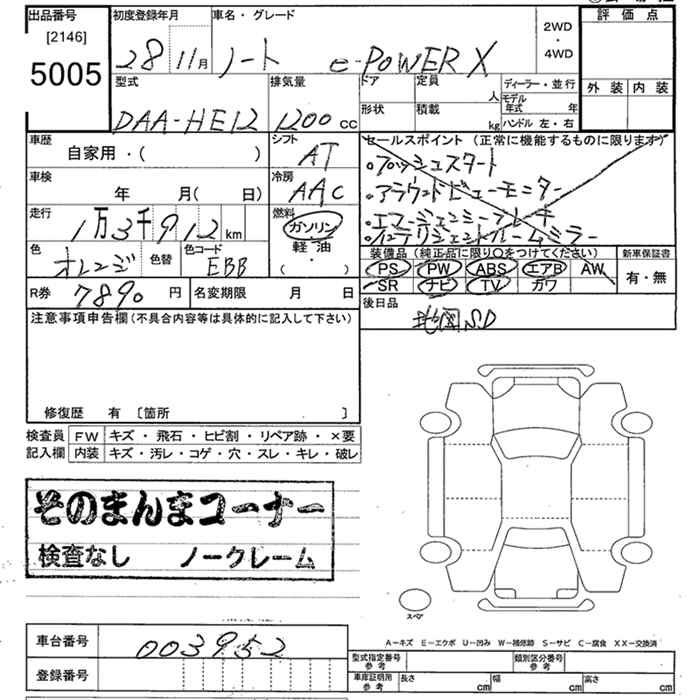 出品番号 [2146] 5005
初度登録年月 28 11月
車名・グレード ノート e-POWER X
2WD・4WD
評価点
外装 内装
型式 DAA-HE12
排気量 1200cc
ドア 形状
定員 人
積載 kg
ディーラー・並行
モデル年式 年
ハンドル 左・右
車歴 自家用・( )
シフト AT
セールスポイント (正常に機能するものに限ります)
・プッシュスタート
・アラウンドビューモニター
・エマージェンシーブレーキ
・インテリジェントルームミラー
車検 年 月( 日)
冷房 AAC
走行 1万3千912km
燃料 ガソリン 軽油 ・( )
色 オレンジ 色替
色コード EBB
装備品 (純正品に限り○をつけてください)
PS PW ABS エアB AW
SR ナビ TV カワ
新車保証書 有・無
R券 7890円
名変期限 月 日
後日品 地図SD
注意事項申告欄 (不具合内容等は具体的に記入して下さい)
修復歴 有 [箇所 ]
検査員 FW キズ・飛石・ヒビ割・リペア跡・×要
記入欄 内装 キズ・汚レ・コゲ・穴・スレ・キレ・破レ
そのまんまコーナー
検査なし ノークレーム
スペア
A-キズ E-エクボ U-凹み W-補修跡 S-サビ C-腐食 XX-交換済
車台番号 003952
登録番号
型式指定番号 参考 類別区分番号 参考
車庫証明用 参考 長さ cm 幅 cm 高さ cm